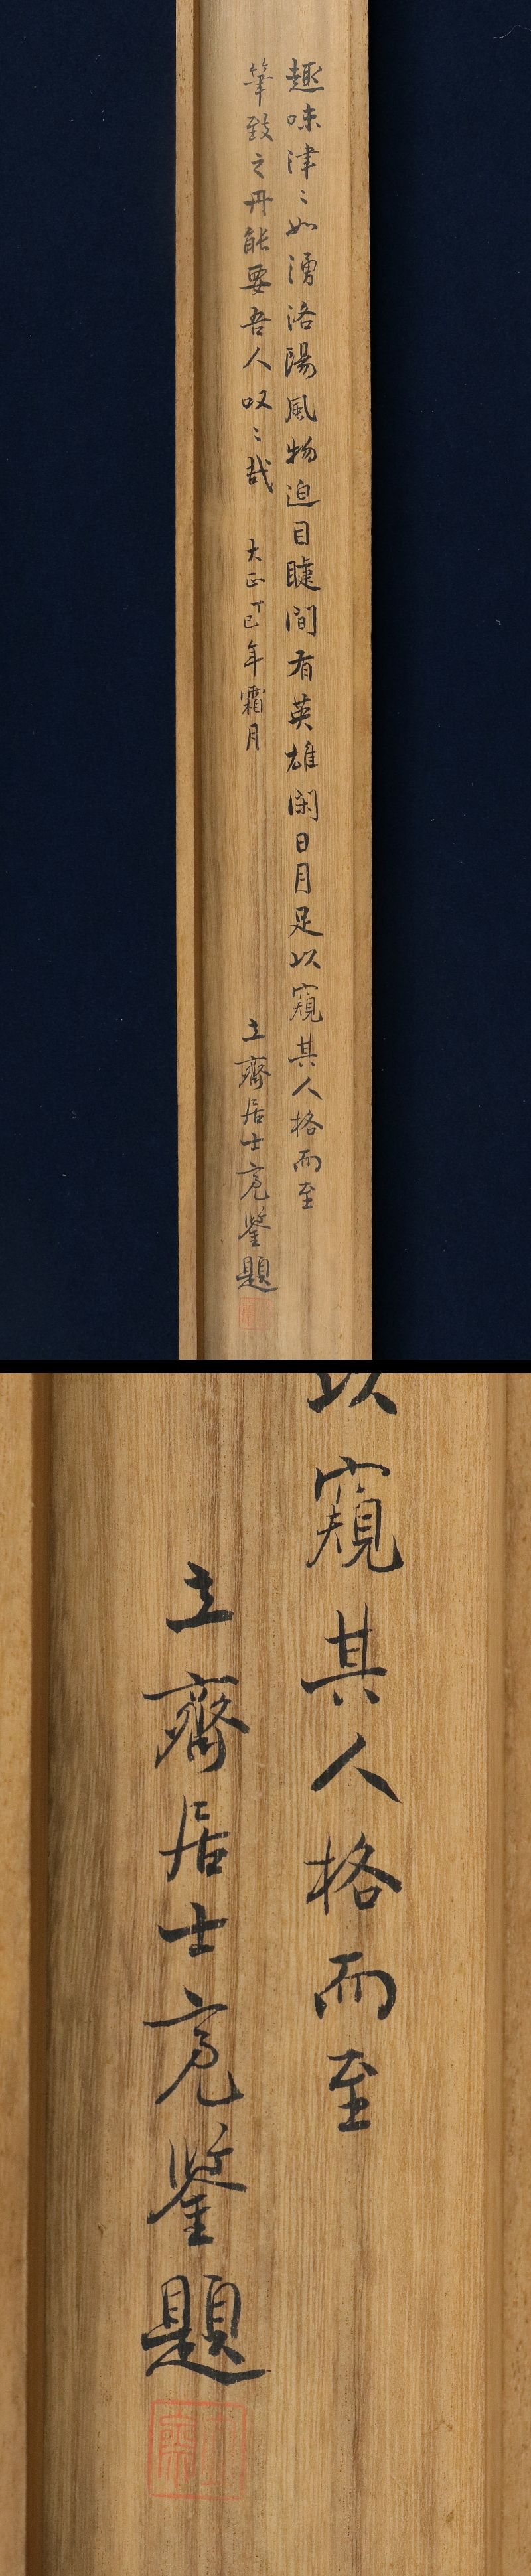 趣味津〻如湧洛陽風物迫目睫間有英雄閑日月足以窺其人格而至
筆致之丹能要吾人叹〻哉 大正丁巳年霜月
立齋居士亮鑒題
以窺其人格而至
立齋居士亮鑒題